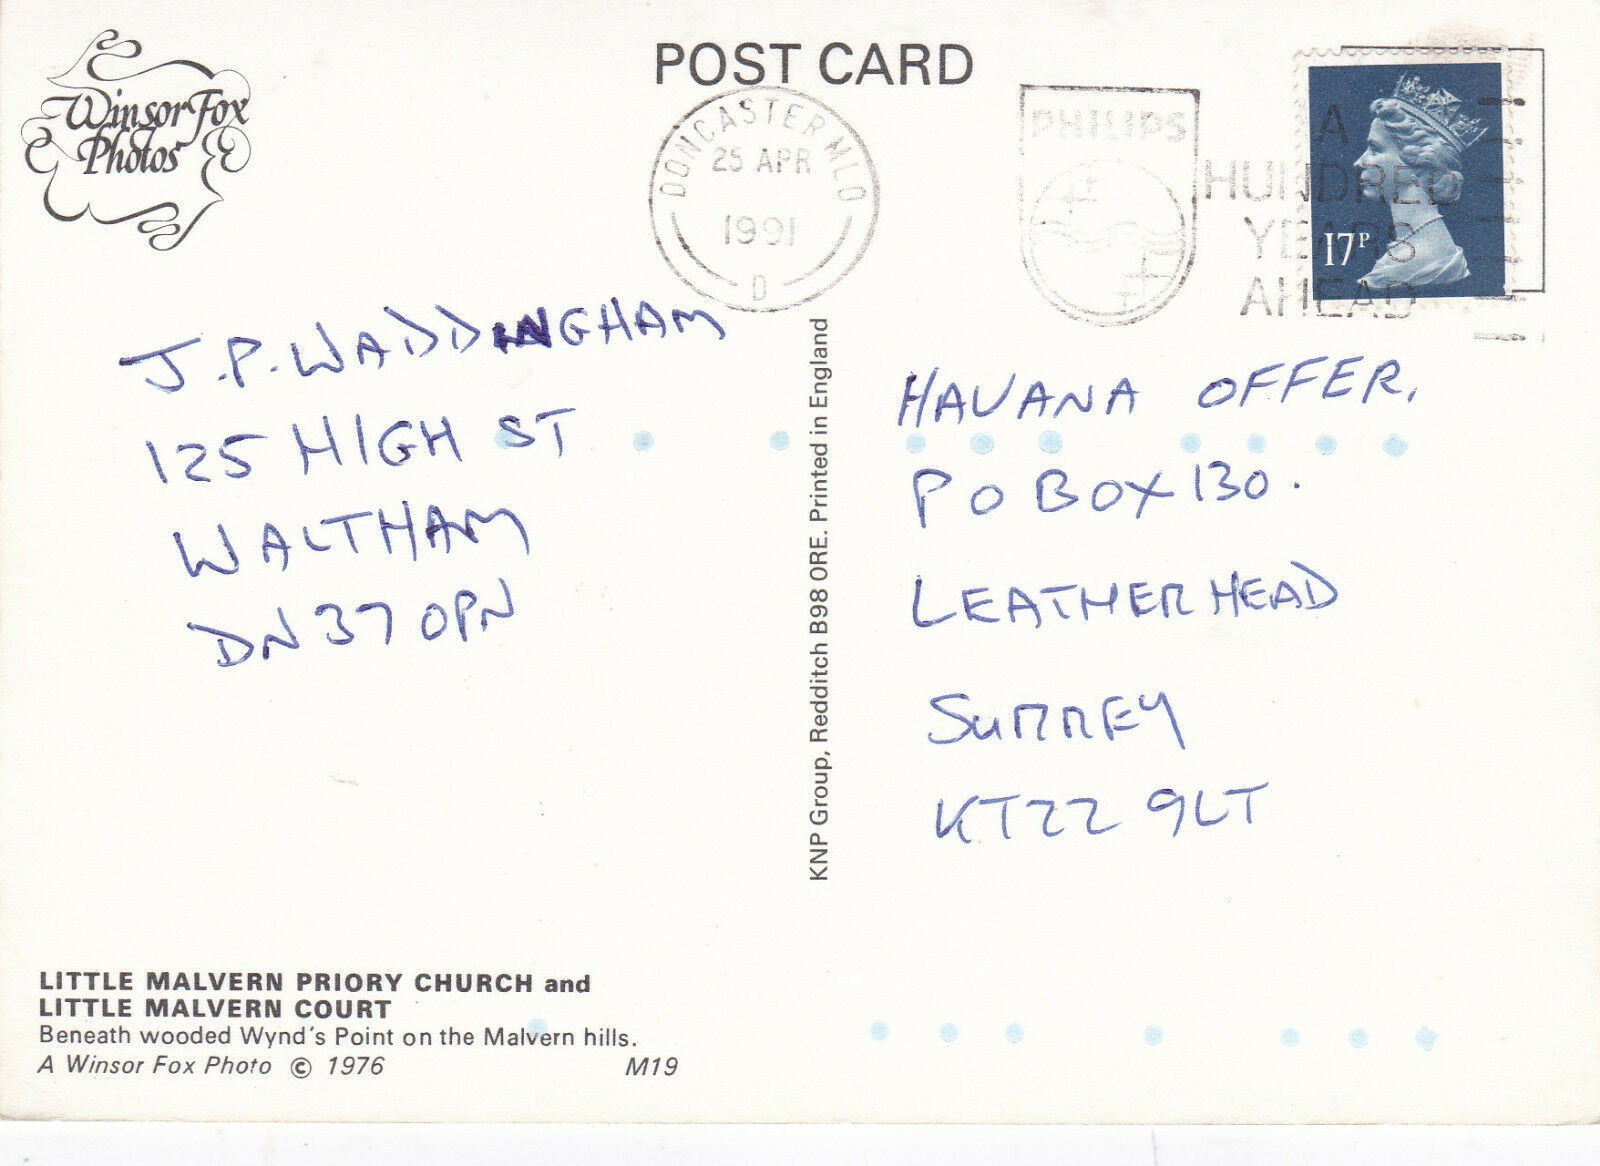 Winsor Fox
Photos
POST CARD
DONCASTER MLO
25 APR
1991
D
PHILIPS
A
HUNDRED
YEARS
AHEAD
17P
J.P. WADDINGHAM
125 HIGH ST
WALTHAM
DN37 0PN
KNP Group, Redditch B98 ORE. Printed in England
HAVANA OFFER,
P O BOX 130.
LEATHERHEAD
SURREY
KT22 9LT
LITTLE MALVERN PRIORY CHURCH and
LITTLE MALVERN COURT
Beneath wooded Wynd's Point on the Malvern hills.
A Winsor Fox Photo © 1976 M19